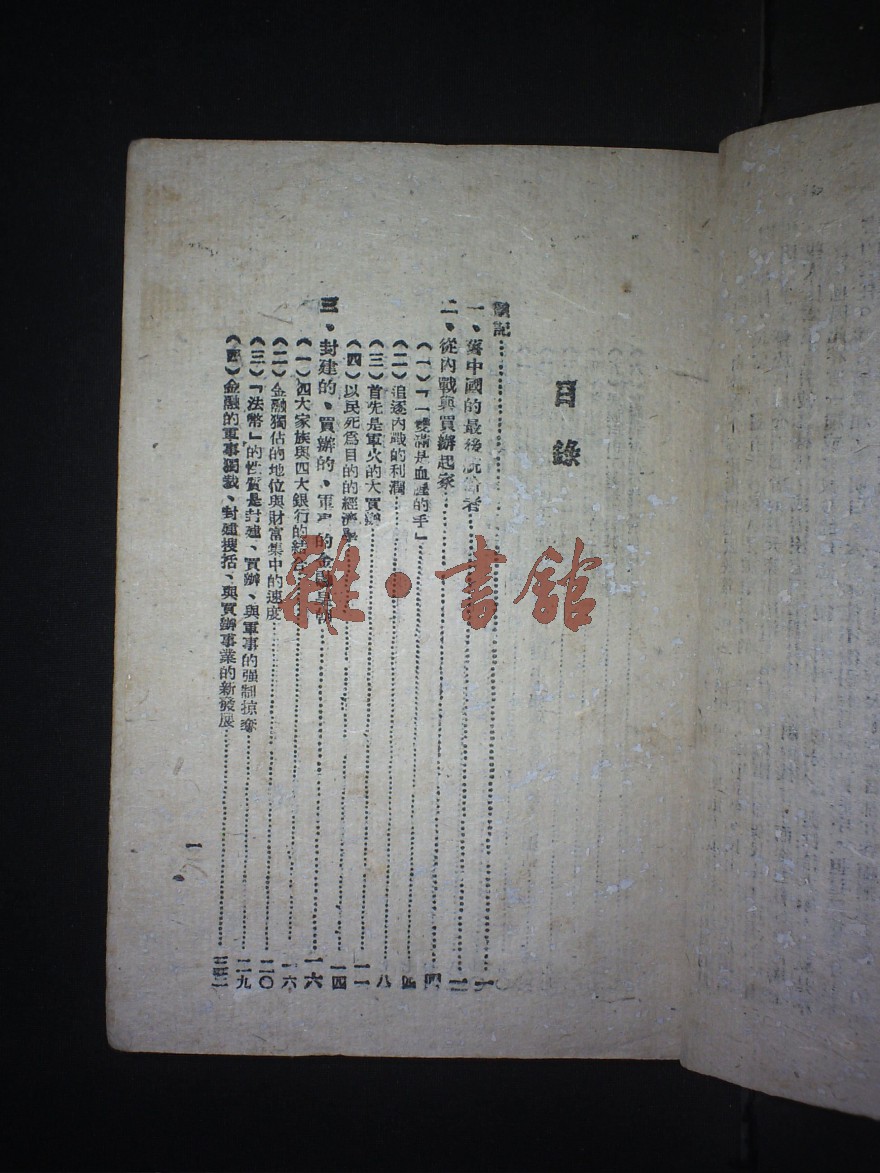 目錄
記……一
一、舊中國的最後統治者……二
二、從內戰與買辦起家……四
（一）『一雙滿是血腥的手』……四
（二）追逐內戰的利潤……八
（三）首先是軍火的大買辦……一一
（四）以民死為目的的經濟學……一四
三、封建的、買辦的、軍事的金融……一六
（一）四大家族與四大銀行的結合……一六
（二）金融獨佔的地位與財富集中的速度……二〇
（三）『法幣』的性質是封建、買辦、與軍事的强制掠奪……二九
（四）金融的軍事獨裁、封建搜括、與買辦事業的新發展……三二
1
雜·書館